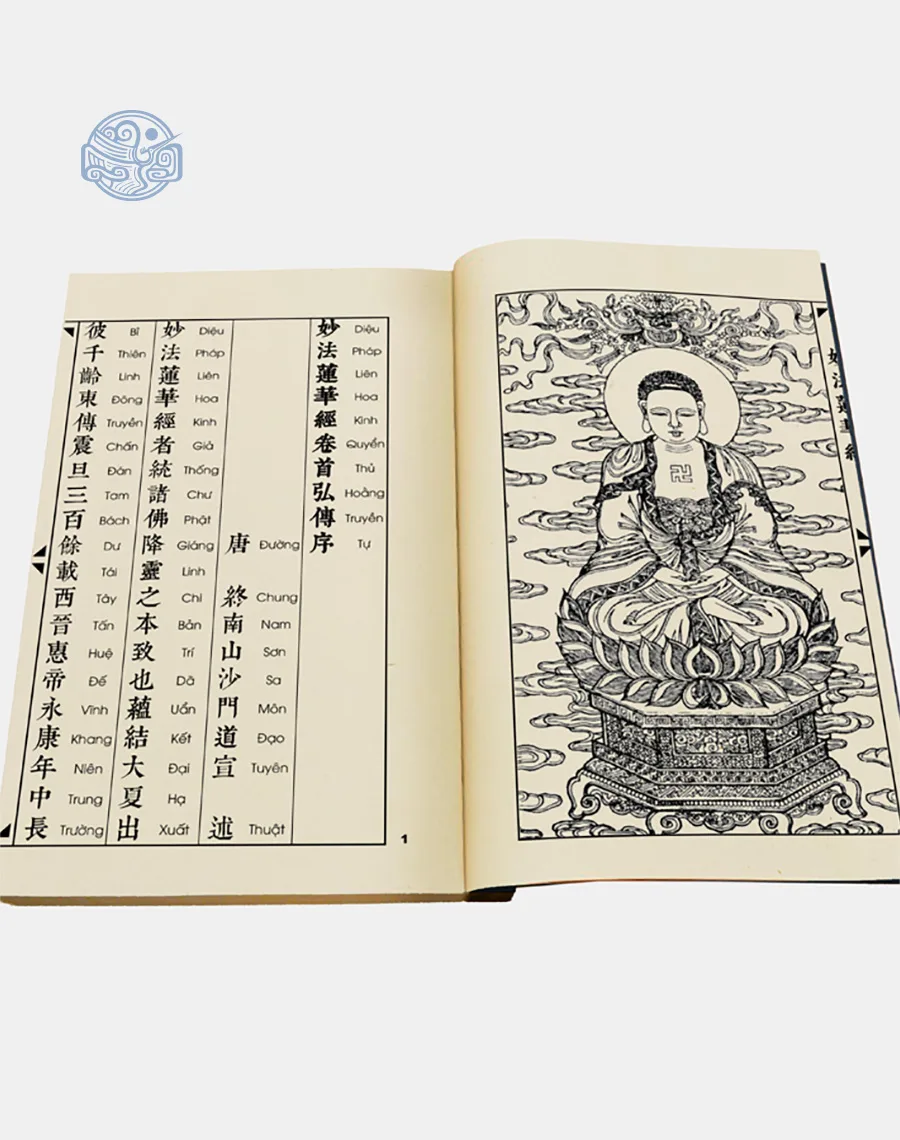 妙法蓮華經
妙法蓮華經卷首弘傳序
Diệu Pháp Liên Hoa Kinh Quyển Thủ Hoằng Truyền Tự
唐 終南山沙門道宣 述
Đường Chung Nam Sơn Sa Môn Đạo Tuyên Thuật
妙法蓮華經者統諸佛降靈之本致也蘊結大夏出
Diệu Pháp Liên Hoa Kinh Giả Thống Chư Phật Giáng Linh Chi Bản Trí Dã Uẩn Kết Đại Hạ Xuất
彼千齡東傳震旦三百餘載西晉惠帝永康年中長
Bỉ Thiên Linh Đông Truyền Chấn Đán Tam Bách Dư Tái Tây Tấn Huệ Đế Vĩnh Khang Niên Trung Trường
1